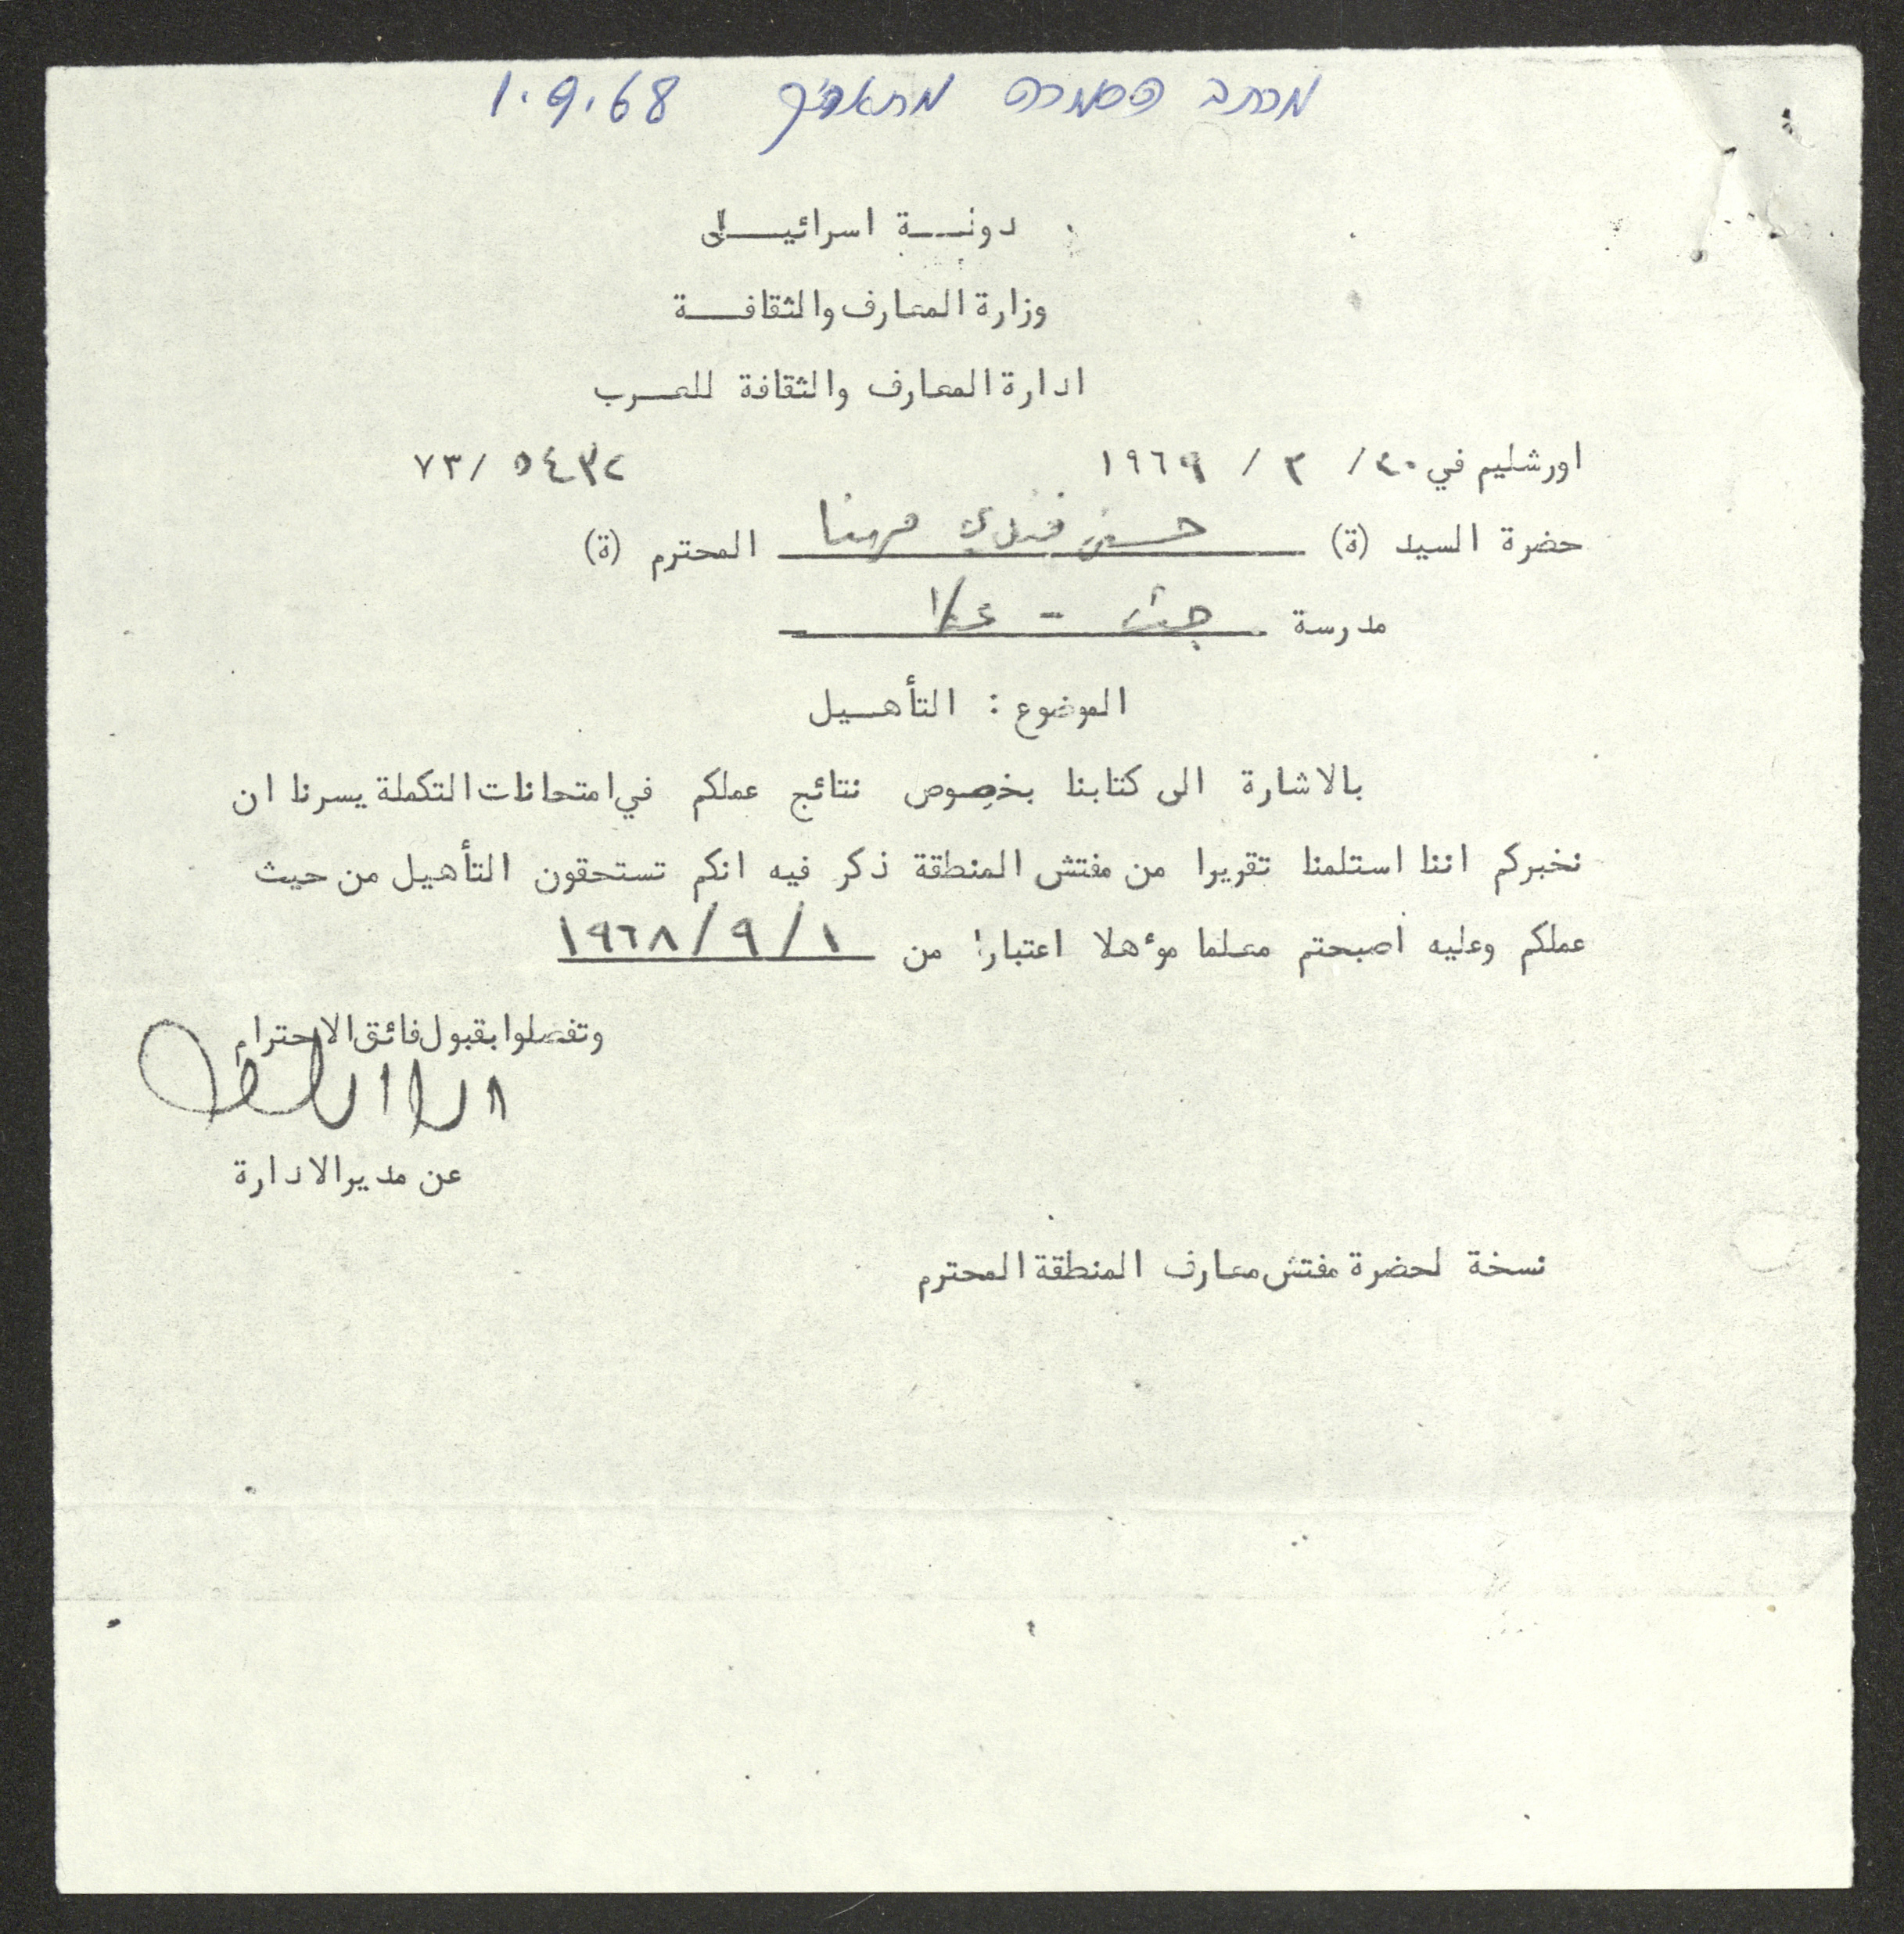 מכתב הסמכה מתאריך 1.9.68
دولـــة اسرائيـــل
وزارة المعارف والثقافـــة
ادارة المعارف والثقافة للعـرب
اورشليم في ٢٠/ ٣ / ١٩٦٩ ٥٤٣٢ /٧٣
حضرة السيد (ة) حسين فندي مهنا المحترم (ة)
مدرسة جث - عكا
الموضوع : التأهـيل
بالاشارة الى كتابنا بخصوص نتائج عملكم في امتحانات التكملة يسرنا ان
نخبركم اننا استلمنا تقريرا من مفتش المنطقة ذكر فيه انكم تستحقون التأهيل من حيث
عملكم وعليه اصبحتم معلما موءهلا اعتبارا من ١/ ٩/ ١٩٦٨
وتفضلوا بقبول فائق الاحترام
عن مدير الادارة
نسخة لحضرة مفتش معارف المنطقة المحترم